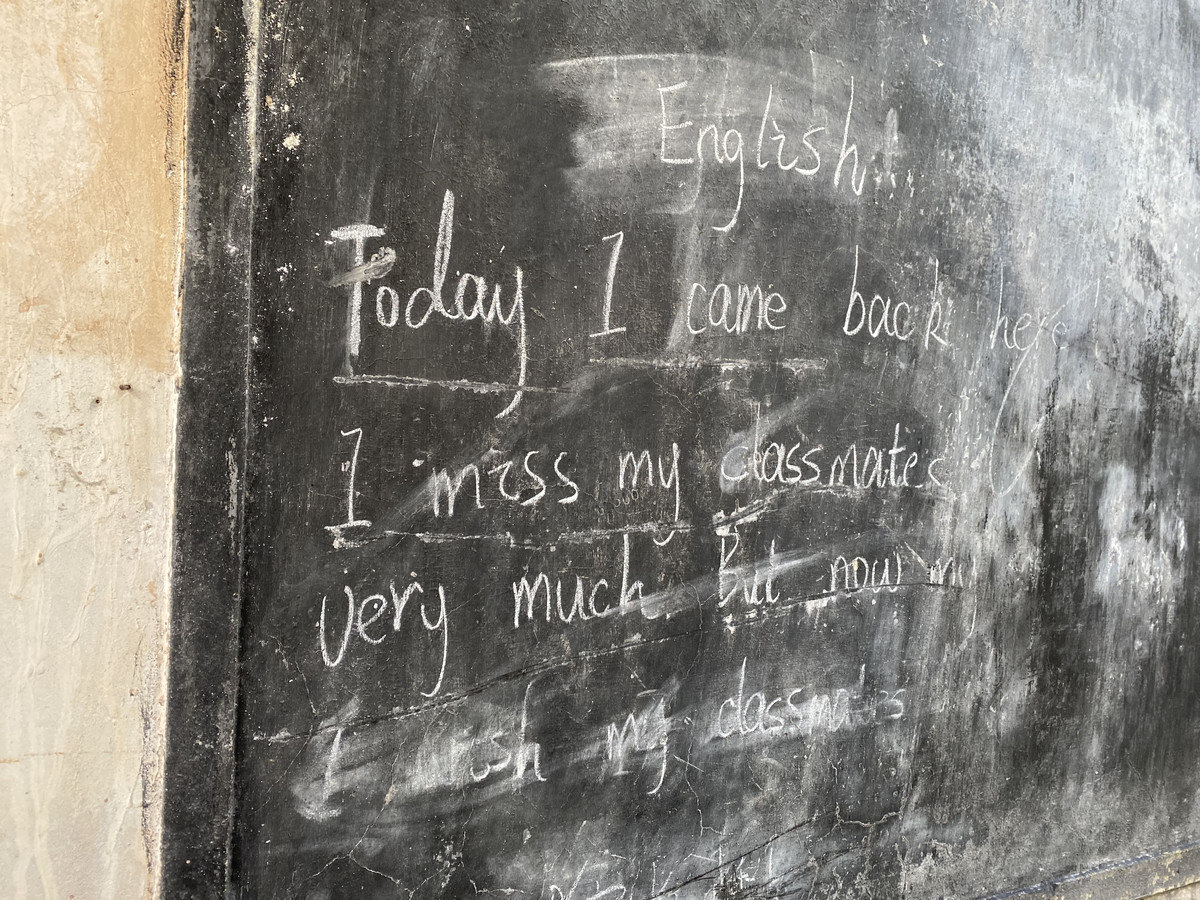 English
Today I came back here
I miss my classmates
very much. But now my
I wish my classmates